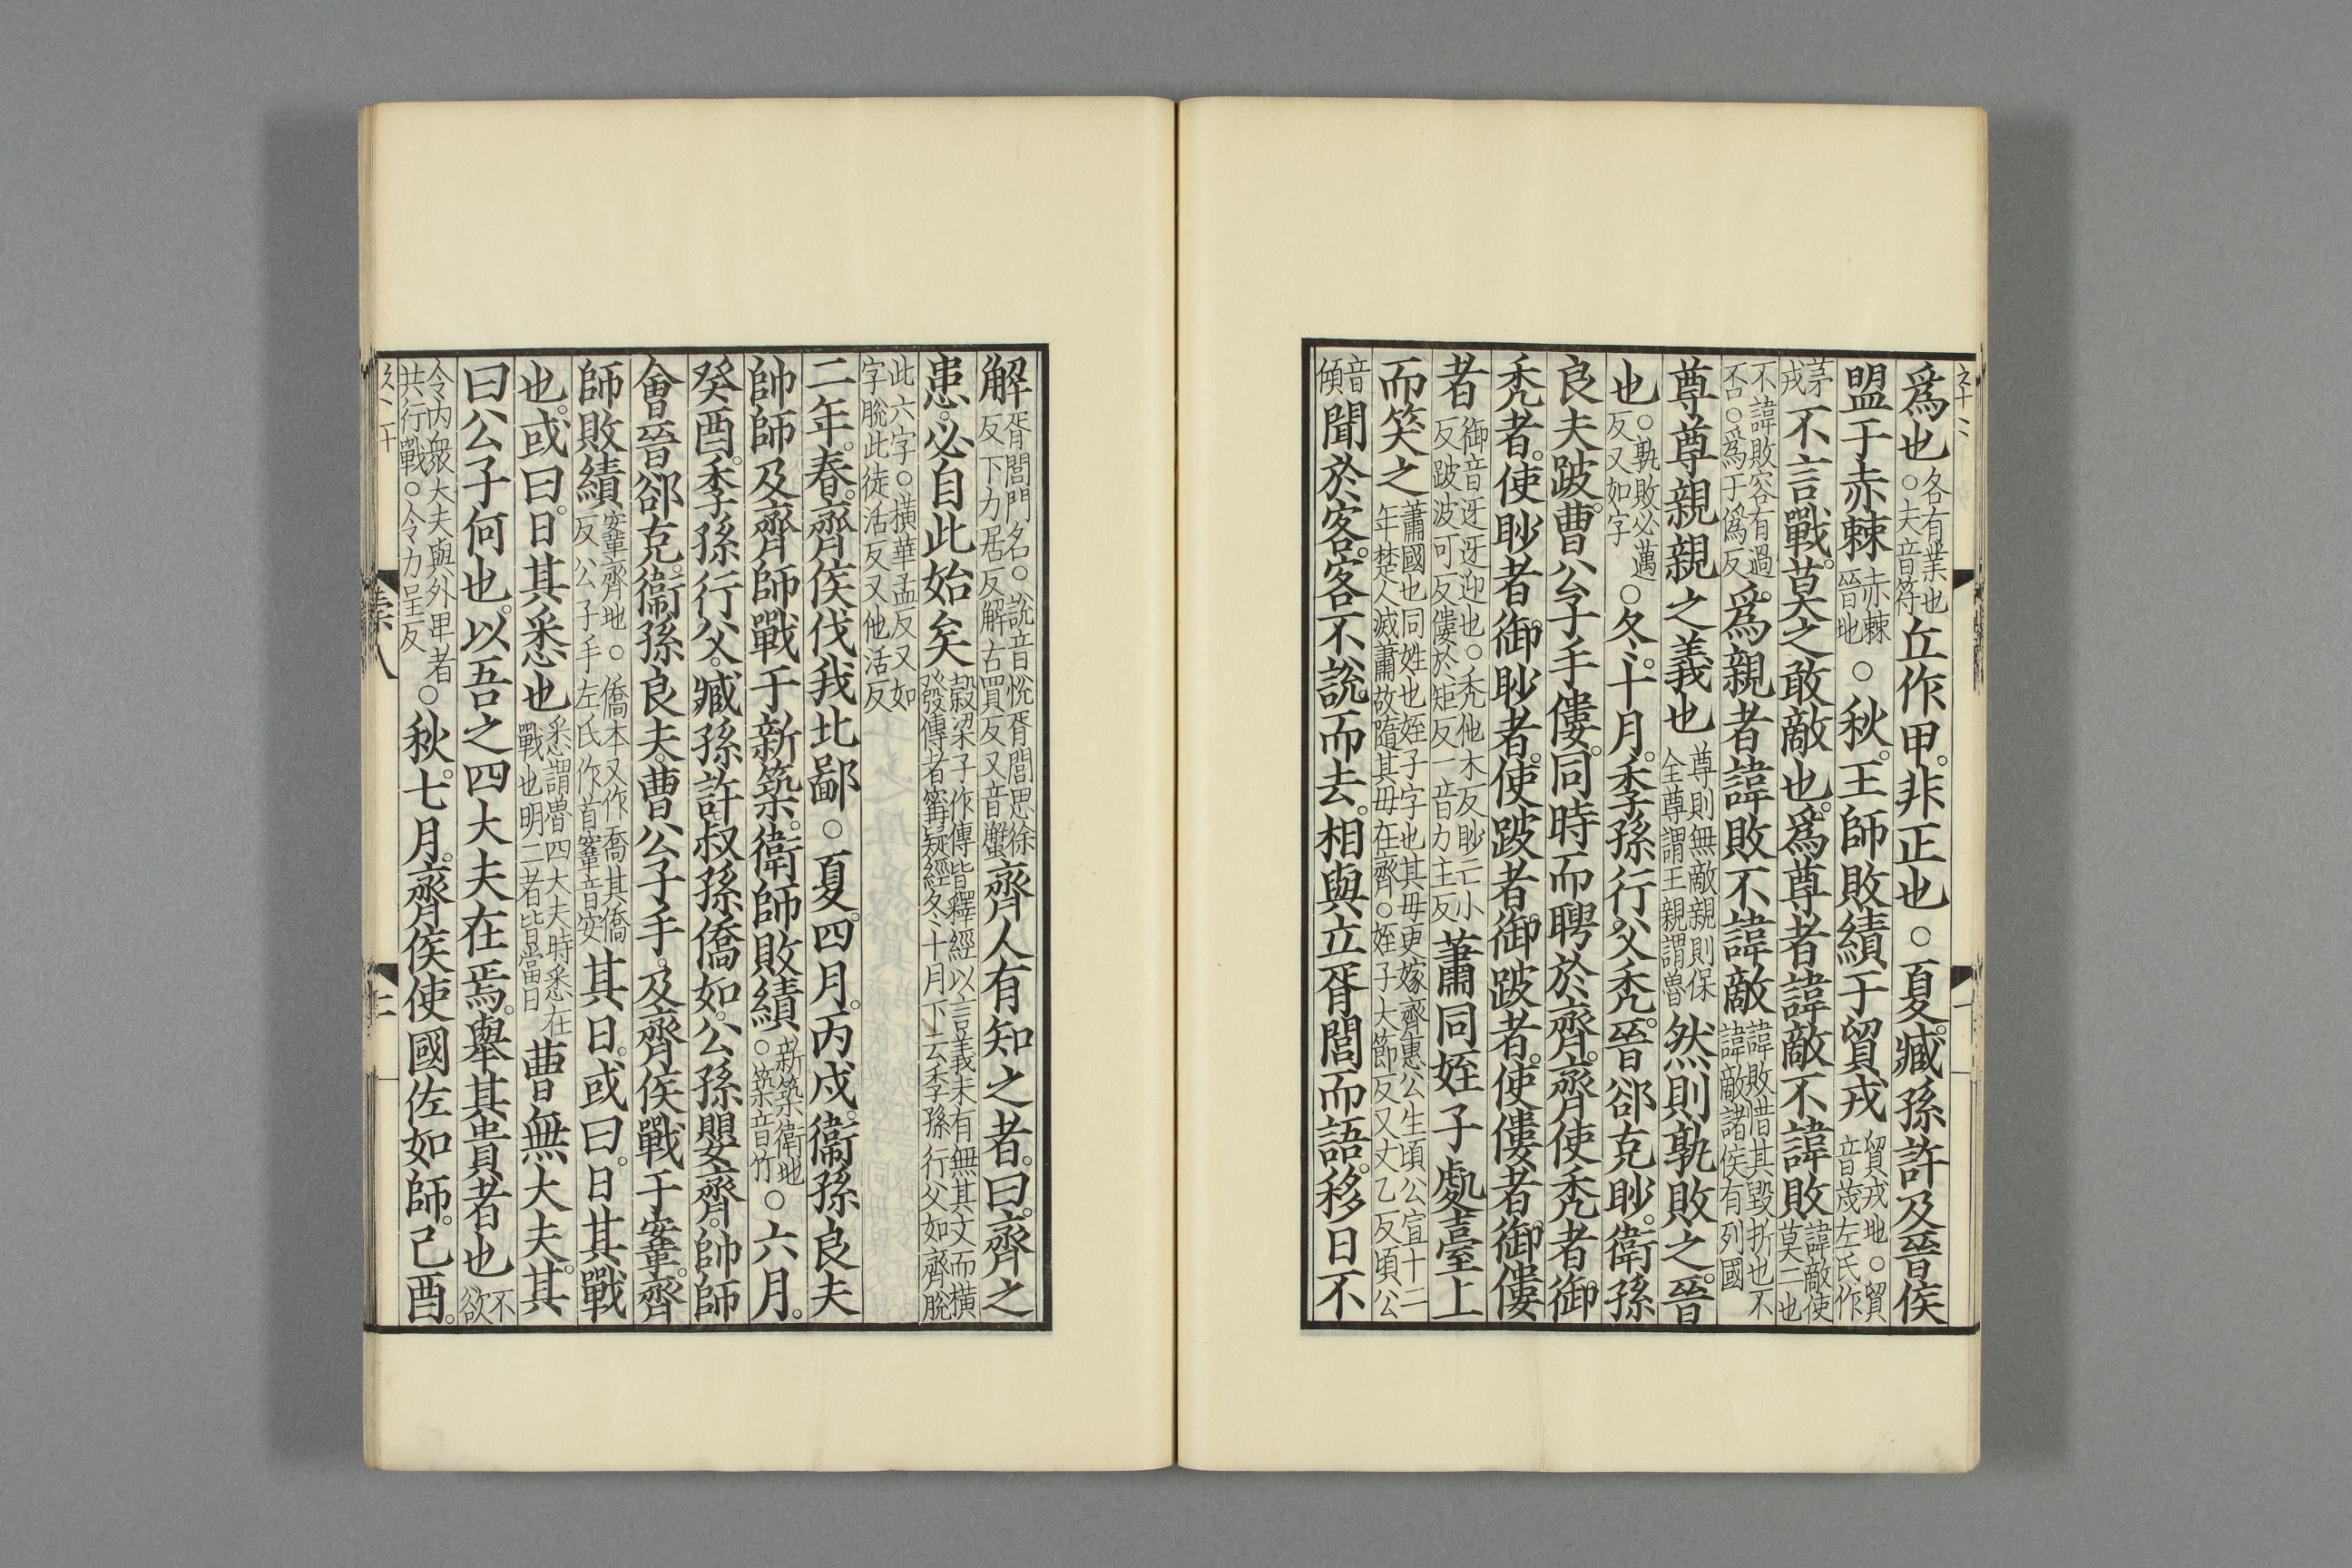 爲也各有業也○夫音符丘作甲非正也○夏臧孫許及晉侯
盟于赤棘赤棘晉地○秋王師敗績于貿戎貿戎地○貿音茂左氏作
茅戎不言戰莫之敢敵也爲尊者諱敵不諱敗諱敵使莫二也
不諱敗容有過否○爲于僞反爲親者諱敗不諱敵諱敗惜其毀折也不諱敵諸侯有列國
尊尊親親之義也尊則無敵親則保全尊謂王親謂魯然則孰敗之晉
也○孰敗必邁反又如字○冬十月季孫行父禿晉郤克眇衛孫
良夫跛曹公子手僂同時而聘於齊齊使禿者御
禿者使眇者御眇者使跛者御跛者使僂者御僂
者御音迓迓迎也○禿他木反眇亡小反跛波可反僂於矩反一音力主反蕭同姪子處臺上
而笑之蕭國也同姓也姪子字也其母更嫁齊惠公生頃公宣十二年楚人滅蕭故隨其母在齊○姪子大節反又丈乙反頃公
音傾聞於客客不說而去相與立胥閭而語移日不
解胥閭門名○說音悅胥閭思徐反下力居反解古買反又音蟹齊人有知之者曰齊之
患必自此始矣穀梁子作傳皆釋經以言義未有無其文而橫發傳者甯疑經冬十月下云季孫行父如齊脫
此六字○橫華孟反又如字脫此徒活反又他活反
二年春齊侯伐我北鄙○夏四月丙戌衛孫良夫
帥師及齊師戰于新築衛師敗績新築衛地○築音竹○六月
癸酉季孫行父臧孫許叔孫僑如公孫嬰齊帥師
會晉郤克衛孫良夫曹公子手及齊侯戰于鞌齊
師敗績鞌齊地○僑本又作喬其僑反公子手左氏作首鞌音安其日或曰日其戰
也或曰日其悉也悉謂魯四大夫時悉在戰也明二者皆當日曹無大夫其
曰公子何也以吾之四大夫在焉舉其貴者也不欲
令內衆大夫與外卑者共行戰○令力呈反○秋七月齊侯使國佐如師己酉